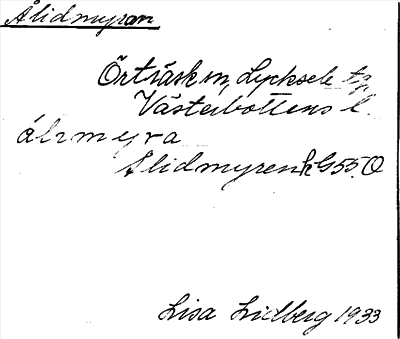 Ålidmyran
Örträsk sn, Lycksele tg,
Västerbottens l.
Alidmyren k G55.O
Lisa Lidberg 1933